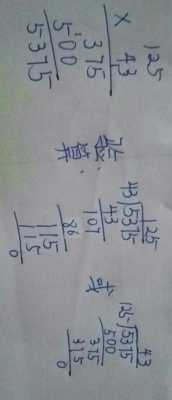 125
× 43
375
500
5375
验算:
125
43)5375
43
107
86
115
115
0
或
43
125)5375
500
375
315
0